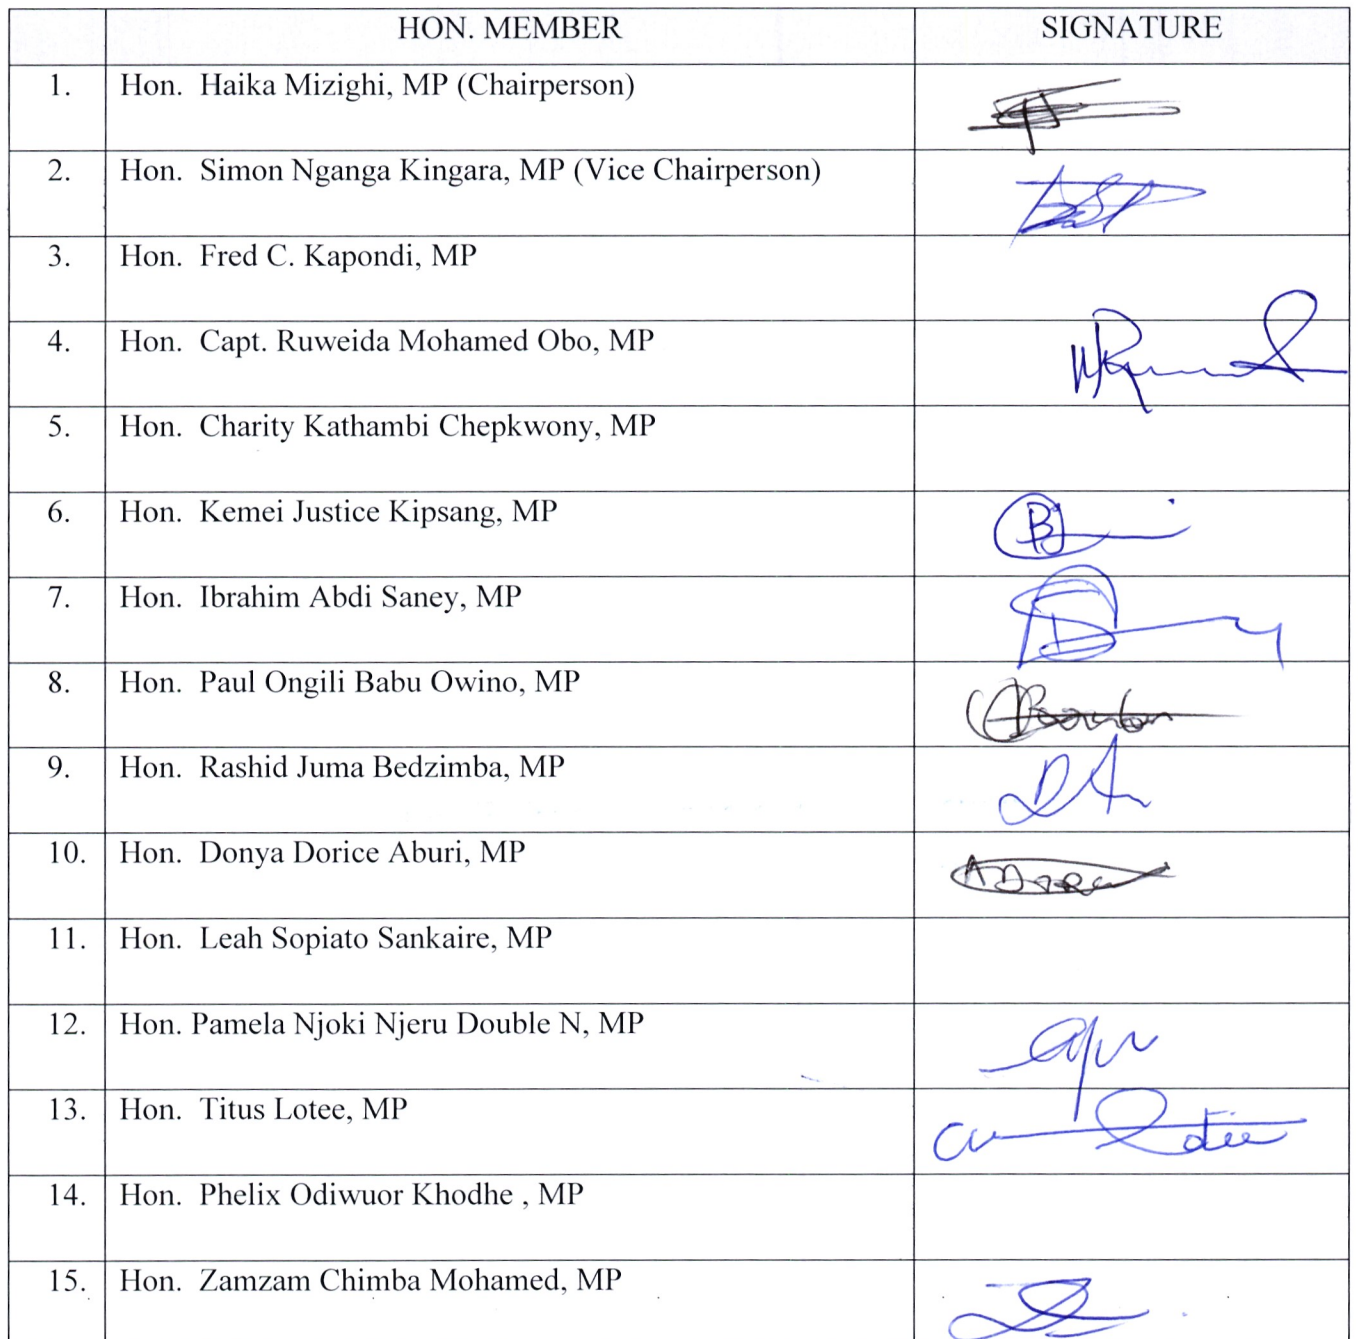 HON. MEMBER SIGNATURE
1. Hon. Haika Mizighi, MP (Chairperson)
2. Hon. Simon Nganga Kingara, MP (Vice Chairperson)
3. Hon. Fred C. Kapondi, MP
4. Hon. Capt. Ruweida Mohamed Obo, MP
5. Hon. Charity Kathambi Chepkwony, MP
6. Hon. Kemei Justice Kipsang, MP
7. Hon. Ibrahim Abdi Saney, MP
8. Hon. Paul Ongili Babu Owino, MP
9. Hon. Rashid Juma Bedzimba, MP
10. Hon. Donya Dorice Aburi, MP
11. Hon. Leah Sopiato Sankaire, MP
12. Hon. Pamela Njoki Njeru Double N, MP
13. Hon. Titus Lotee, MP
14. Hon. Phelix Odiwuor Khodhe , MP
15. Hon. Zamzam Chimba Mohamed, MP